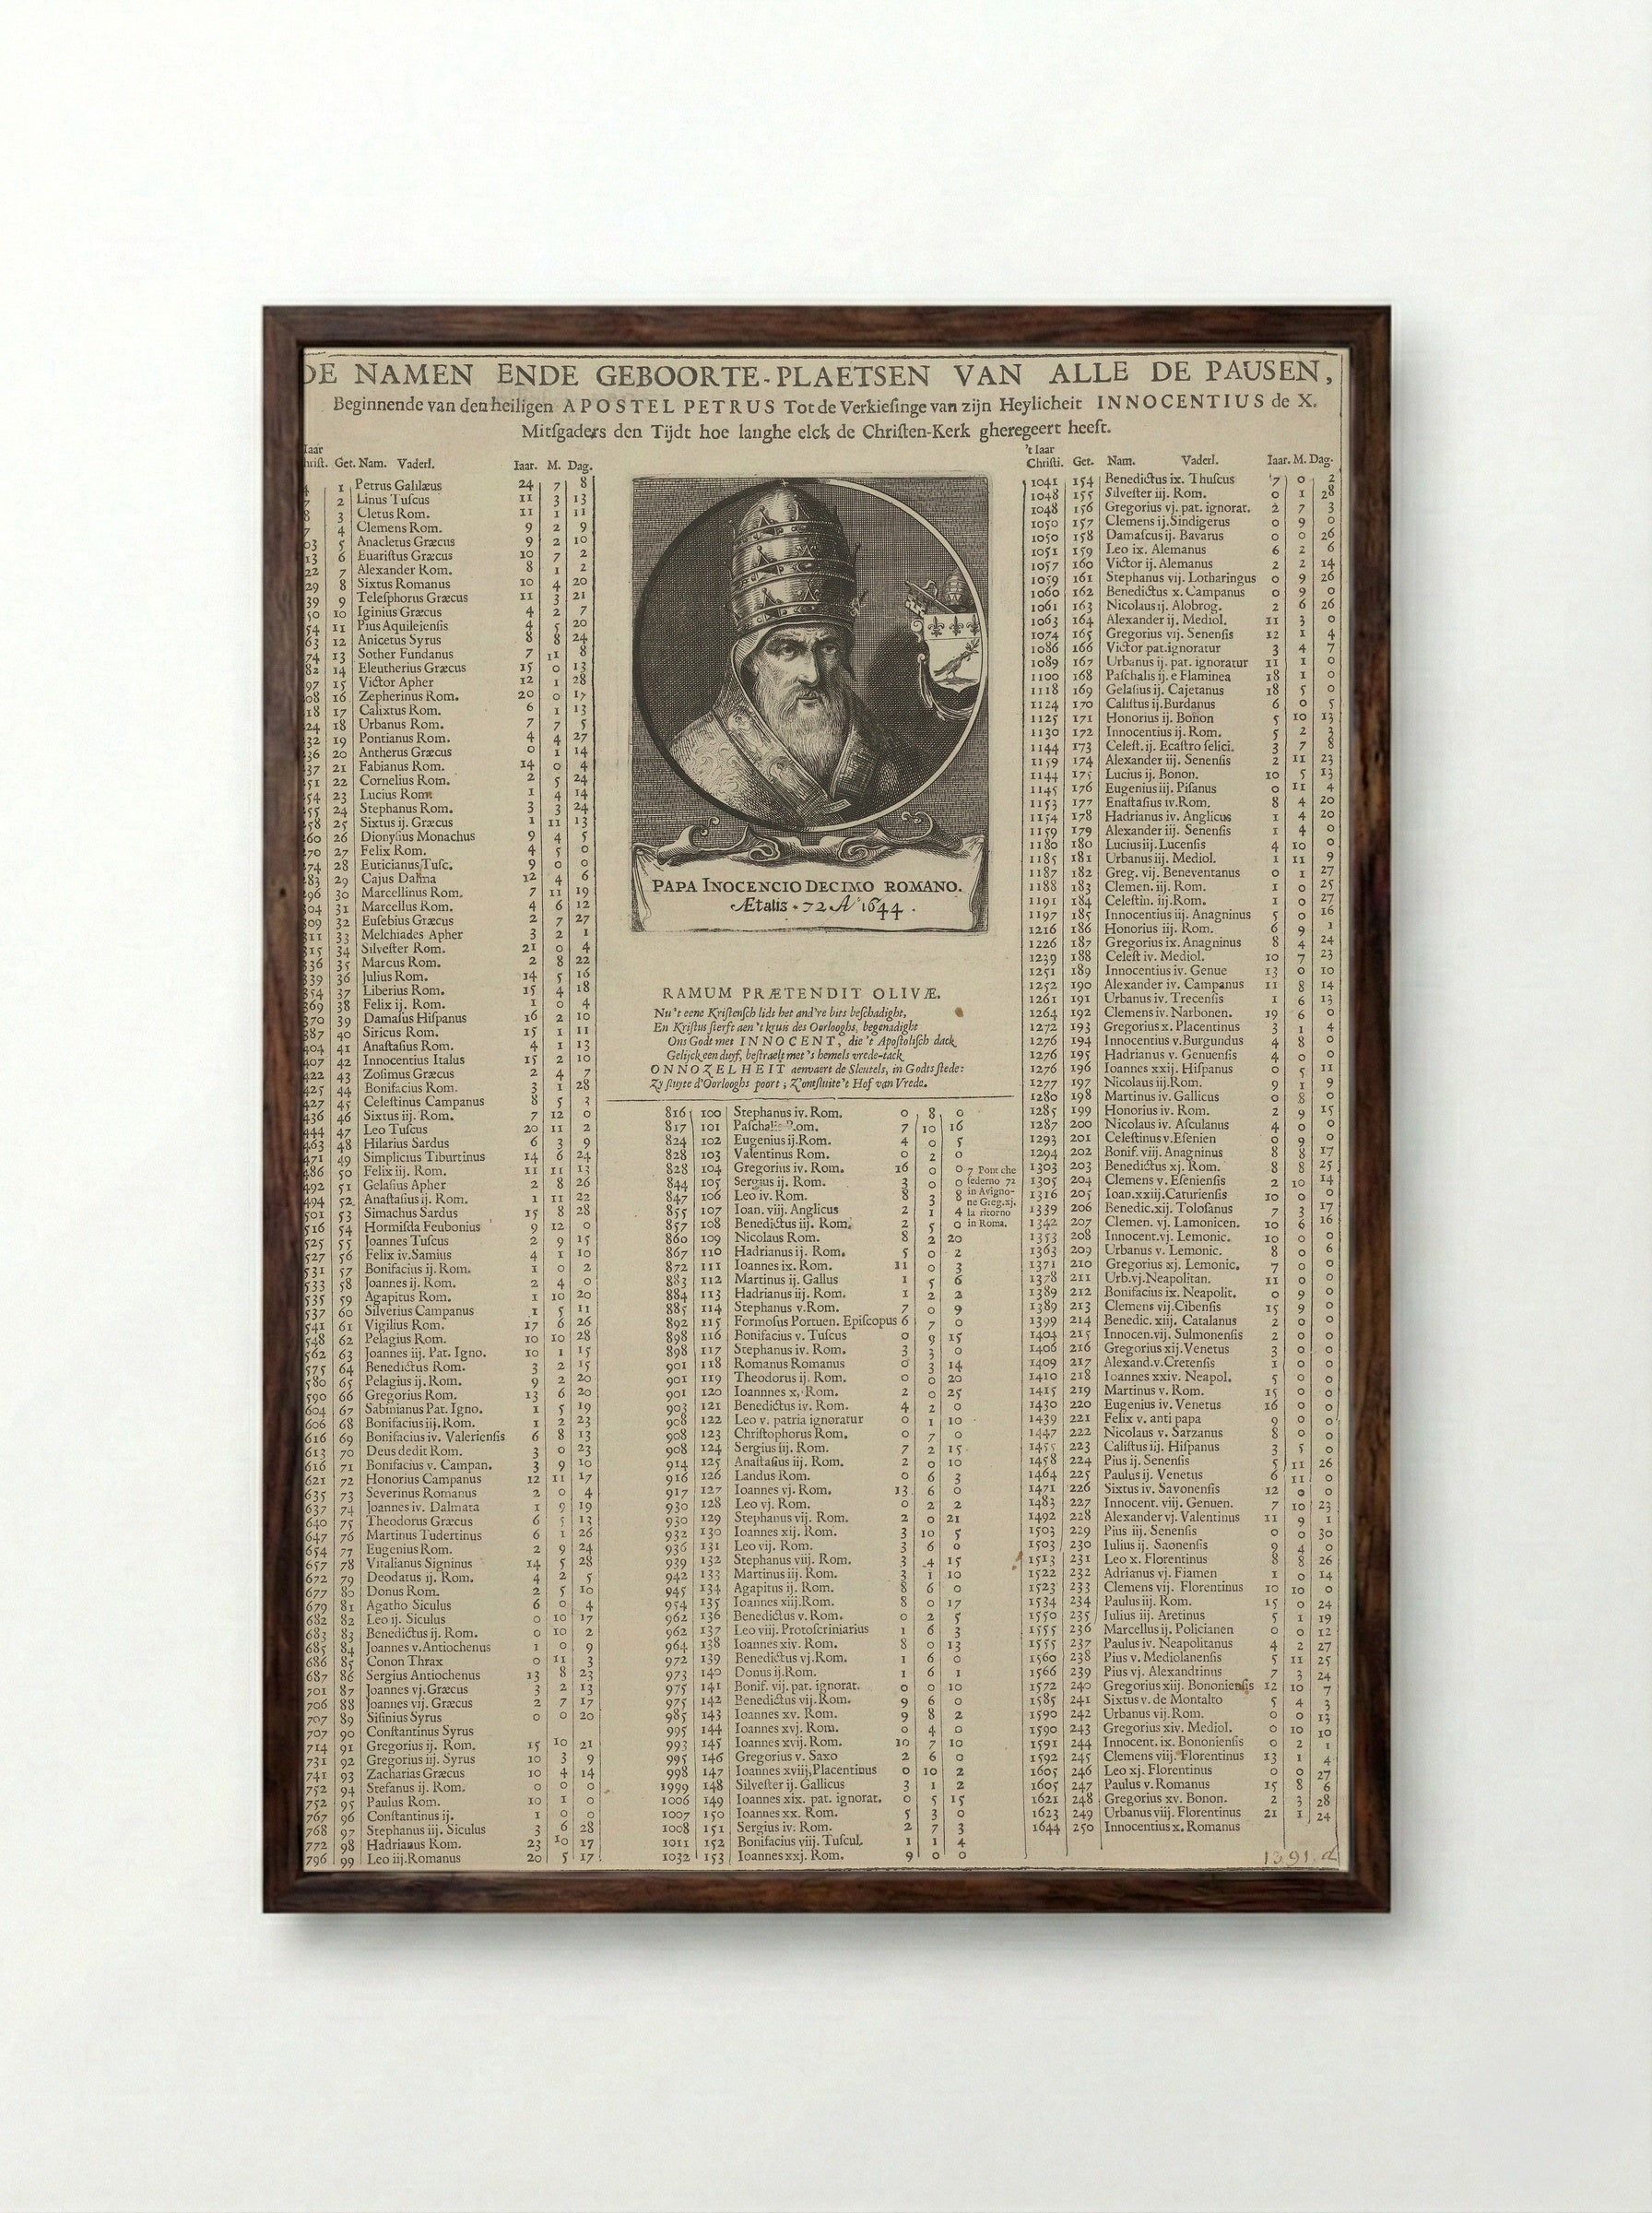 DE NAMEN ENDE GEBOORTE-PLAETSEN VAN ALLE DE PAUSEN,
Beginnende van den heiligen APOSTEL PETRUS Tot de Verkieſinge van zijn Heylicheit INNOCENTIUS de X.
Mitſgaders den Tijdt hoe langhe elck de Chriſten-Kerk gheregeert heeft.
Iaar
hriſt. Get. Nam. Vaderl. Iaar. M. Dag.
1 Petrus Galilæus 24 7 8
2 Linus Tuſcus 11 3 13
3 Cletus Rom. 11 1 11
4 Clemens Rom. 9 2 9
03 5 Anacletus Græcus 9 2 10
13 6 Euariſtus Græcus 10 7 2
22 7 Alexander Rom. 8 1 2
29 8 Sixtus Romanus 10 4 20
39 9 Teleſphorus Græcus 11 3 21
50 10 Iginius Græcus 4 2 7
54 11 Pius Aquileienſis 4 5 20
63 12 Anicetus Syrus 8 8 24
74 13 Sother Fundanus 7 11 8
82 14 Eleutherius Græcus 15 0 13
97 15 Victor Apher 12 1 28
08 16 Zepherinus Rom. 20 0 17
18 17 Calixtus Rom. 6 1 13
24 18 Urbanus Rom. 7 7 5
32 19 Pontianus Rom. 4 4 27
36 20 Antherus Græcus 0 1 14
37 21 Fabianus Rom. 14 0 4
51 22 Cornelius Rom. 2 5 24
54 23 Lucius Rom. 1 4 14
55 24 Stephanus Rom. 3 3 24
58 25 Sixtus ij. Græcus 1 11 13
60 26 Dionyſius Monachus 9 4 5
70 27 Felix Rom. 4 5 0
74 28 Euticianus Tuſc. 9 0 0
83 29 Cajus Dalma 12 4 6
96 30 Marcellinus Rom. 7 11 19
304 31 Marcellus Rom. 4 6 12
309 32 Euſebius Græcus 2 7 27
311 33 Melchiades Apher 3 2 1
315 34 Silveſter Rom. 21 0 4
336 35 Marcus Rom. 2 8 22
339 36 Julius Rom. 14 5 16
354 37 Liberius Rom. 15 4 18
369 38 Felix ij. Rom. 1 0 4
370 39 Damaſus Hiſpanus 16 2 10
387 40 Siricus Rom. 15 1 11
404 41 Anaſtaſius Rom. 4 1 13
407 42 Innocentius Italus 15 2 10
422 43 Zoſimus Græcus 2 4 7
425 44 Bonifacius Rom. 3 1 28
427 45 Celeſtinus Campanus 8 5 3
436 46 Sixtus iij. Rom. 7 12 0
444 47 Leo Tuſcus 20 11 2
463 48 Hilarius Sardus 6 3 9
471 49 Simplicius Tiburtinus 14 6 24
486 50 Felix iij. Rom. 11 11 13
492 51 Gelaſius Apher 2 8 26
494 52 Anaſtaſius ij. Rom. 1 11 22
501 53 Simachus Sardus 15 8 28
516 54 Hormiſda Feubonius 9 12 0
525 55 Joannes Tuſcus 2 9 15
527 56 Felix iv. Samius 4 1 10
531 57 Bonifacius ij. Rom. 1 0 2
533 58 Joannes ij. Rom. 2 4 0
535 59 Agapitus Rom. 1 10 20
537 60 Silverius Campanus 1 5 11
541 61 Vigilius Rom. 17 6 26
548 62 Pelagius Rom. 10 10 28
562 63 Joannes iij. Pat. Igno. 10 1 15
575 64 Benedictus Rom. 3 2 15
580 65 Pelagius ij. Rom. 9 2 20
590 66 Gregorius Rom. 13 6 20
604 67 Sabinianus Pat. Igno. 1 5 19
606 68 Bonifacius iij. Rom. 1 2 23
616 69 Bonifacius iv. Valerienſis 6 8 13
613 70 Deus dedit Rom. 3 0 23
616 71 Bonifacius v. Campan. 3 9 10
621 72 Honorius Campanus 12 11 17
635 73 Severinus Romanus 2 0 4
637 74 Joannes iv. Dalmata 1 9 19
640 75 Theodorus Græcus 6 5 13
647 76 Martinus Tudertinus 6 1 26
654 77 Eugenius Rom. 2 9 24
657 78 Vitalianus Signinus 14 5 28
672 79 Deodatus ij. Rom. 4 2 5
677 80 Donus Rom. 2 5 10
679 81 Agatho Siculus 6 0 4
682 82 Leo ij. Siculus 0 10 17
683 83 Benedictus ij. Rom. 0 10 2
685 84 Joannes v. Antiochenus 1 0 9
686 85 Conon Thrax 0 11 3
687 86 Sergius Antiochenus 13 8 23
701 87 Joannes vj. Græcus 3 2 13
706 88 Joannes vij. Græcus 2 7 17
707 89 Siſinius Syrus 0 0 20
707 90 Conſtantinus Syrus
714 91 Gregorius ij. Rom. 15 10 21
731 92 Gregorius iij. Syrus 10 3 9
741 93 Zacharias Græcus 10 4 14
752 94 Stefanus ij. Rom. 0 0 0
752 95 Paulus Rom. 10 1 0
767 96 Conſtantinus ij. 1 0 0
768 97 Stephanus iij. Siculus 3 6 28
772 98 Hadrianus Rom. 23 10 17
796 99 Leo iij. Romanus 20 5 17
PAPA INOCENCIO DECIMO ROMANO.
Ætatis. 72 A° 1644.
RAMUM PRÆTENDIT OLIVÆ.
Nu 't eene Kriſtenſch lidt het and're bits beſchadight,
En Kriſtus ſterft aen 't kruis des Oorlooghs, begenadight
Ons Godt met INNOCENT, die 't Apoſtoliſch dack
Gelijck een duyf, beſtraelt met 's hemels vrede-tack
ONNOZELHEIT aenvaert de Sleutels, in Godts ſtede:
Zy ſluyte d'Oorlooghs poort; Z'ontſluite 't Hof van Vrede.
816 100 Stephanus iv. Rom. 0 8 0
817 101 Paſchalis Rom. 7 10 16
824 102 Eugenius ij. Rom. 4 0 5
828 103 Valentinus Rom. 0 2 0
828 104 Gregorius iv. Rom. 16 0 0
844 105 Sergius ij. Rom. 3 0 0
847 106 Leo iv. Rom. 8 3 8
855 107 Ioan. viij. Anglicus 2 1 4
857 108 Benedictus iij. Rom. 2 5 0
860 109 Nicolaus Rom. 8 2 20
867 110 Hadrianus ij. Rom. 5 0 2
872 111 Ioannes ix. Rom. 11 0 3
883 112 Martinus ij. Gallus 1 5 6
884 113 Hadrianus iij. Rom. 1 2 2
885 114 Stephanus v. Rom. 7 0 9
892 115 Formoſus Portuen. Epiſcopus 6 7 0
898 116 Bonifacius v. Tuſcus 0 9 15
898 117 Stephanus iv. Rom. 3 3 0
901 118 Romanus Romanus 0 3 14
901 119 Theodorus ij. Rom. 0 0 20
901 120 Ioannnes x. Rom. 2 0 25
903 121 Benedictus iv. Rom. 4 2 0
908 122 Leo v. patria ignoratur 0 1 10
908 123 Chriſtophorus Rom. 0 7 0
908 124 Sergius iij. Rom. 7 2 15
914 125 Anaſtaſius iij. Rom. 2 0 10
916 126 Landus Rom. 0 6 3
917 127 Ioannes vj. Rom. 13 6 0
930 128 Leo vj. Rom. 0 2 2
930 129 Stephanus vij. Rom. 2 0 21
932 130 Ioannes xij. Rom. 3 10 5
936 131 Leo vij. Rom. 3 6 0
939 132 Stephanus viij. Rom. 3 4 15
942 133 Martinus iij. Rom. 3 1 10
945 134 Agapitus ij. Rom. 8 6 0
954 135 Ioannes xiij. Rom. 8 0 17
962 136 Benedictus v. Rom. 0 2 5
962 137 Leo viij. Protoſcriniarius 1 6 3
964 138 Ioannes xiv. Rom. 8 0 13
972 139 Benedictus vj. Rom. 1 6 0
973 140 Donus ij. Rom. 1 6 1
975 141 Bonif. vij. pat. ignorat. 0 0 10
975 142 Benedictus vij. Rom. 9 6 0
985 143 Ioannes xv. Rom. 9 8 2
995 144 Ioannes xvj. Rom. 0 4 0
993 145 Ioannes xvij. Rom. 10 7 10
995 146 Gregorius v. Saxo 2 6 0
998 147 Ioannes xviij. Placentinus 0 10 2
1999 148 Silveſter ij. Gallicus 3 1 2
1006 149 Ioannes xix. pat. ignorat. 0 5 15
1007 150 Ioannes xx. Rom. 5 3 0
1008 151 Sergius iv. Rom. 2 7 3
1011 152 Bonifacius viij. Tuſcul. 1 1 4
1032 153 Ioannes xxj. Rom. 9 0 0
7 Pont che
ſederno 72
in Avigno-
ne Greg. xj.
la ritorno
in Roma.
't Iaar
Chriſti. Get. Nam. Vaderl. Iaar. M. Dag.
1041 154 Benedictus ix. Thuſcus 7 0 2
1048 155 Silveſter iij. Rom. 0 1 28
1048 156 Gregorius vj. pat. ignorat. 2 7 3
1050 157 Clemens ij. Sindigerus 0 9 0
1050 158 Damaſcus ij. Bavarus 0 0 26
1051 159 Leo ix. Alemanus 6 2 6
1057 160 Victor ij. Alemanus 2 2 14
1059 161 Stephanus vij. Lotharingus 0 9 26
1060 162 Benedictus x. Campanus 0 9 0
1061 163 Nicolaus ij. Alobrog. 2 6 26
1063 164 Alexander ij. Mediol. 11 3 0
1074 165 Gregorius vij. Senenſis 12 1 4
1086 166 Victor pat. ignoratur 3 4 7
1089 167 Urbanus ij. pat. ignoratur 11 1 0
1100 168 Paſchalis ij. e Flaminea 18 1 0
1118 169 Gelaſius ij. Cajetanus 18 5 0
1124 170 Caliſtus ij. Burdanus 6 0 5
1125 171 Honorius ij. Bonon 5 10 13
1130 172 Innocentius ij. Rom. 5 2 3
1144 173 Celeſt. ij. Ecaſtro felici. 3 7 8
1159 174 Alexander iij. Senenſis 2 11 23
1144 175 Lucius ij. Bonon. 10 5 13
1145 176 Eugenius iij. Piſanus 0 11 4
1153 177 Enaſtaſius iv. Rom. 8 4 20
1154 178 Hadrianus iv. Anglicus 1 4 20
1159 179 Alexander iij. Senenſis 1 4 0
1180 180 Lucius iij. Lucenſis 4 10 0
1185 181 Urbanus iij. Mediol. 1 11 9
1187 182 Greg. vij. Beneventanus 0 1 27
1188 183 Clemen. iij. Rom. 1 0 25
1191 184 Celeſtin. iij. Rom. 1 0 27
1197 185 Innocentius iij. Anagninus 5 0 16
1216 186 Honorius iij. Rom. 6 9 1
1226 187 Gregorius ix. Anagninus 8 4 24
1239 188 Celeſt iv. Mediol. 10 7 23
1251 189 Innocentius iv. Genue 13 0 10
1252 190 Alexander iv. Campanus 11 8 14
1261 191 Urbanus iv. Trecenſis 1 6 13
1264 192 Clemens iv. Narbonen. 19 6 0
1272 193 Gregorius x. Placentinus 3 1 4
1276 194 Innocentius v. Burgundus 4 8 0
1276 195 Hadrianus v. Genuenſis 4 0 0
1276 196 Ioannes xxij. Hiſpanus 0 5 11
1277 197 Nicolaus iij. Rom. 9 1 9
1280 198 Martinus iv. Gallicus 0 8 0
1285 199 Honorius iv. Rom. 2 9 15
1287 200 Nicolaus iv. Aſculanus 4 0 0
1293 201 Celeſtinus v. Eſenien 0 9 0
1294 202 Bonif. viij. Anagninus 8 8 17
1303 203 Benedictus xj. Rom. 8 8 25
1305 204 Clemens v. Eſenienſis 2 10 14
1316 205 Ioan. xxiij. Caturienſis 10 0 0
1339 206 Benedic. xij. Toloſanus 7 3 17
1342 207 Clemen. vj. Lamonicen. 10 6 16
1353 208 Innocent. vj. Lemonic. 10 0 0
1363 209 Urbanus v. Lemonic. 8 0 6
1371 210 Gregorius xj. Lemonic. 7 0 0
1378 211 Urb. vj. Neapolitan. 11 0 0
1389 212 Bonifacius ix. Neapolit. 0 9 0
1389 213 Clemens vij. Cibenſis 15 9 0
1399 214 Benedic. xiij. Catalanus 2 0 0
1404 215 Innocen. vij. Sulmonenſis 2 0 0
1406 216 Gregorius xij. Venetus 3 0 0
1409 217 Alexand. v. Cretenſis 1 0 0
1410 218 Ioannes xxiv. Neapol. 5 0 0
1415 219 Martinus v. Rom. 15 0 0
1430 220 Eugenius iv. Venetus 16 0 0
1439 221 Felix v. anti papa 9 0 0
1447 222 Nicolaus v. Sarzanus 8 0 0
1455 223 Caliſtus iij. Hiſpanus 3 5 0
1458 224 Pius ij. Senenſis 5 11 26
1464 225 Paulus ij. Venetus 6 11 0
1471 226 Sixtus iv. Savonenſis 12 0 0
1483 227 Innocent. viij. Genuen. 7 10 23
1492 228 Alexander vj. Valentinus 11 9 1
1503 229 Pius iij. Senenſis 0 0 30
1503 230 Iulius ij. Saonenſis 9 4 0
1513 231 Leo x. Florentinus 8 8 26
1522 232 Adrianus vj. Fiamen 1 0 14
1523 233 Clemens vij. Florentinus 10 10 0
1534 234 Paulus iij. Rom. 15 0 24
1550 235 Iulius iij. Aretinus 5 1 19
1555 236 Marcellus ij. Policianen 0 0 12
1555 237 Paulus iv. Neapolitanus 4 2 27
1560 238 Pius v. Mediolanenſis 5 11 25
1566 239 Pius vj. Alexandrinus 7 3 24
1572 240 Gregorius xiij. Bononienſis 12 10 7
1585 241 Sixtus v. de Montalto 5 4 3
1590 242 Urbanus vij. Rom. 0 0 13
1590 243 Gregorius xiv. Mediol. 0 10 10
1591 244 Innocent. ix. Bononienſis 0 2 1
1592 245 Clemens viij. Florentinus 13 1 4
1605 246 Leo xj. Florentinus 0 0 27
1605 247 Paulus v. Romanus 15 8 6
1621 248 Gregorius xv. Bonon. 2 3 28
1623 249 Urbanus viij. Florentinus 21 1 24
1644 250 Innocentius x. Romanus